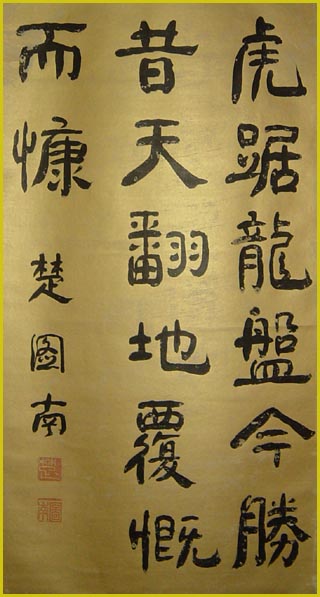 虎踞龍盤今勝
昔天翻地覆慨
而慷
楚圖南